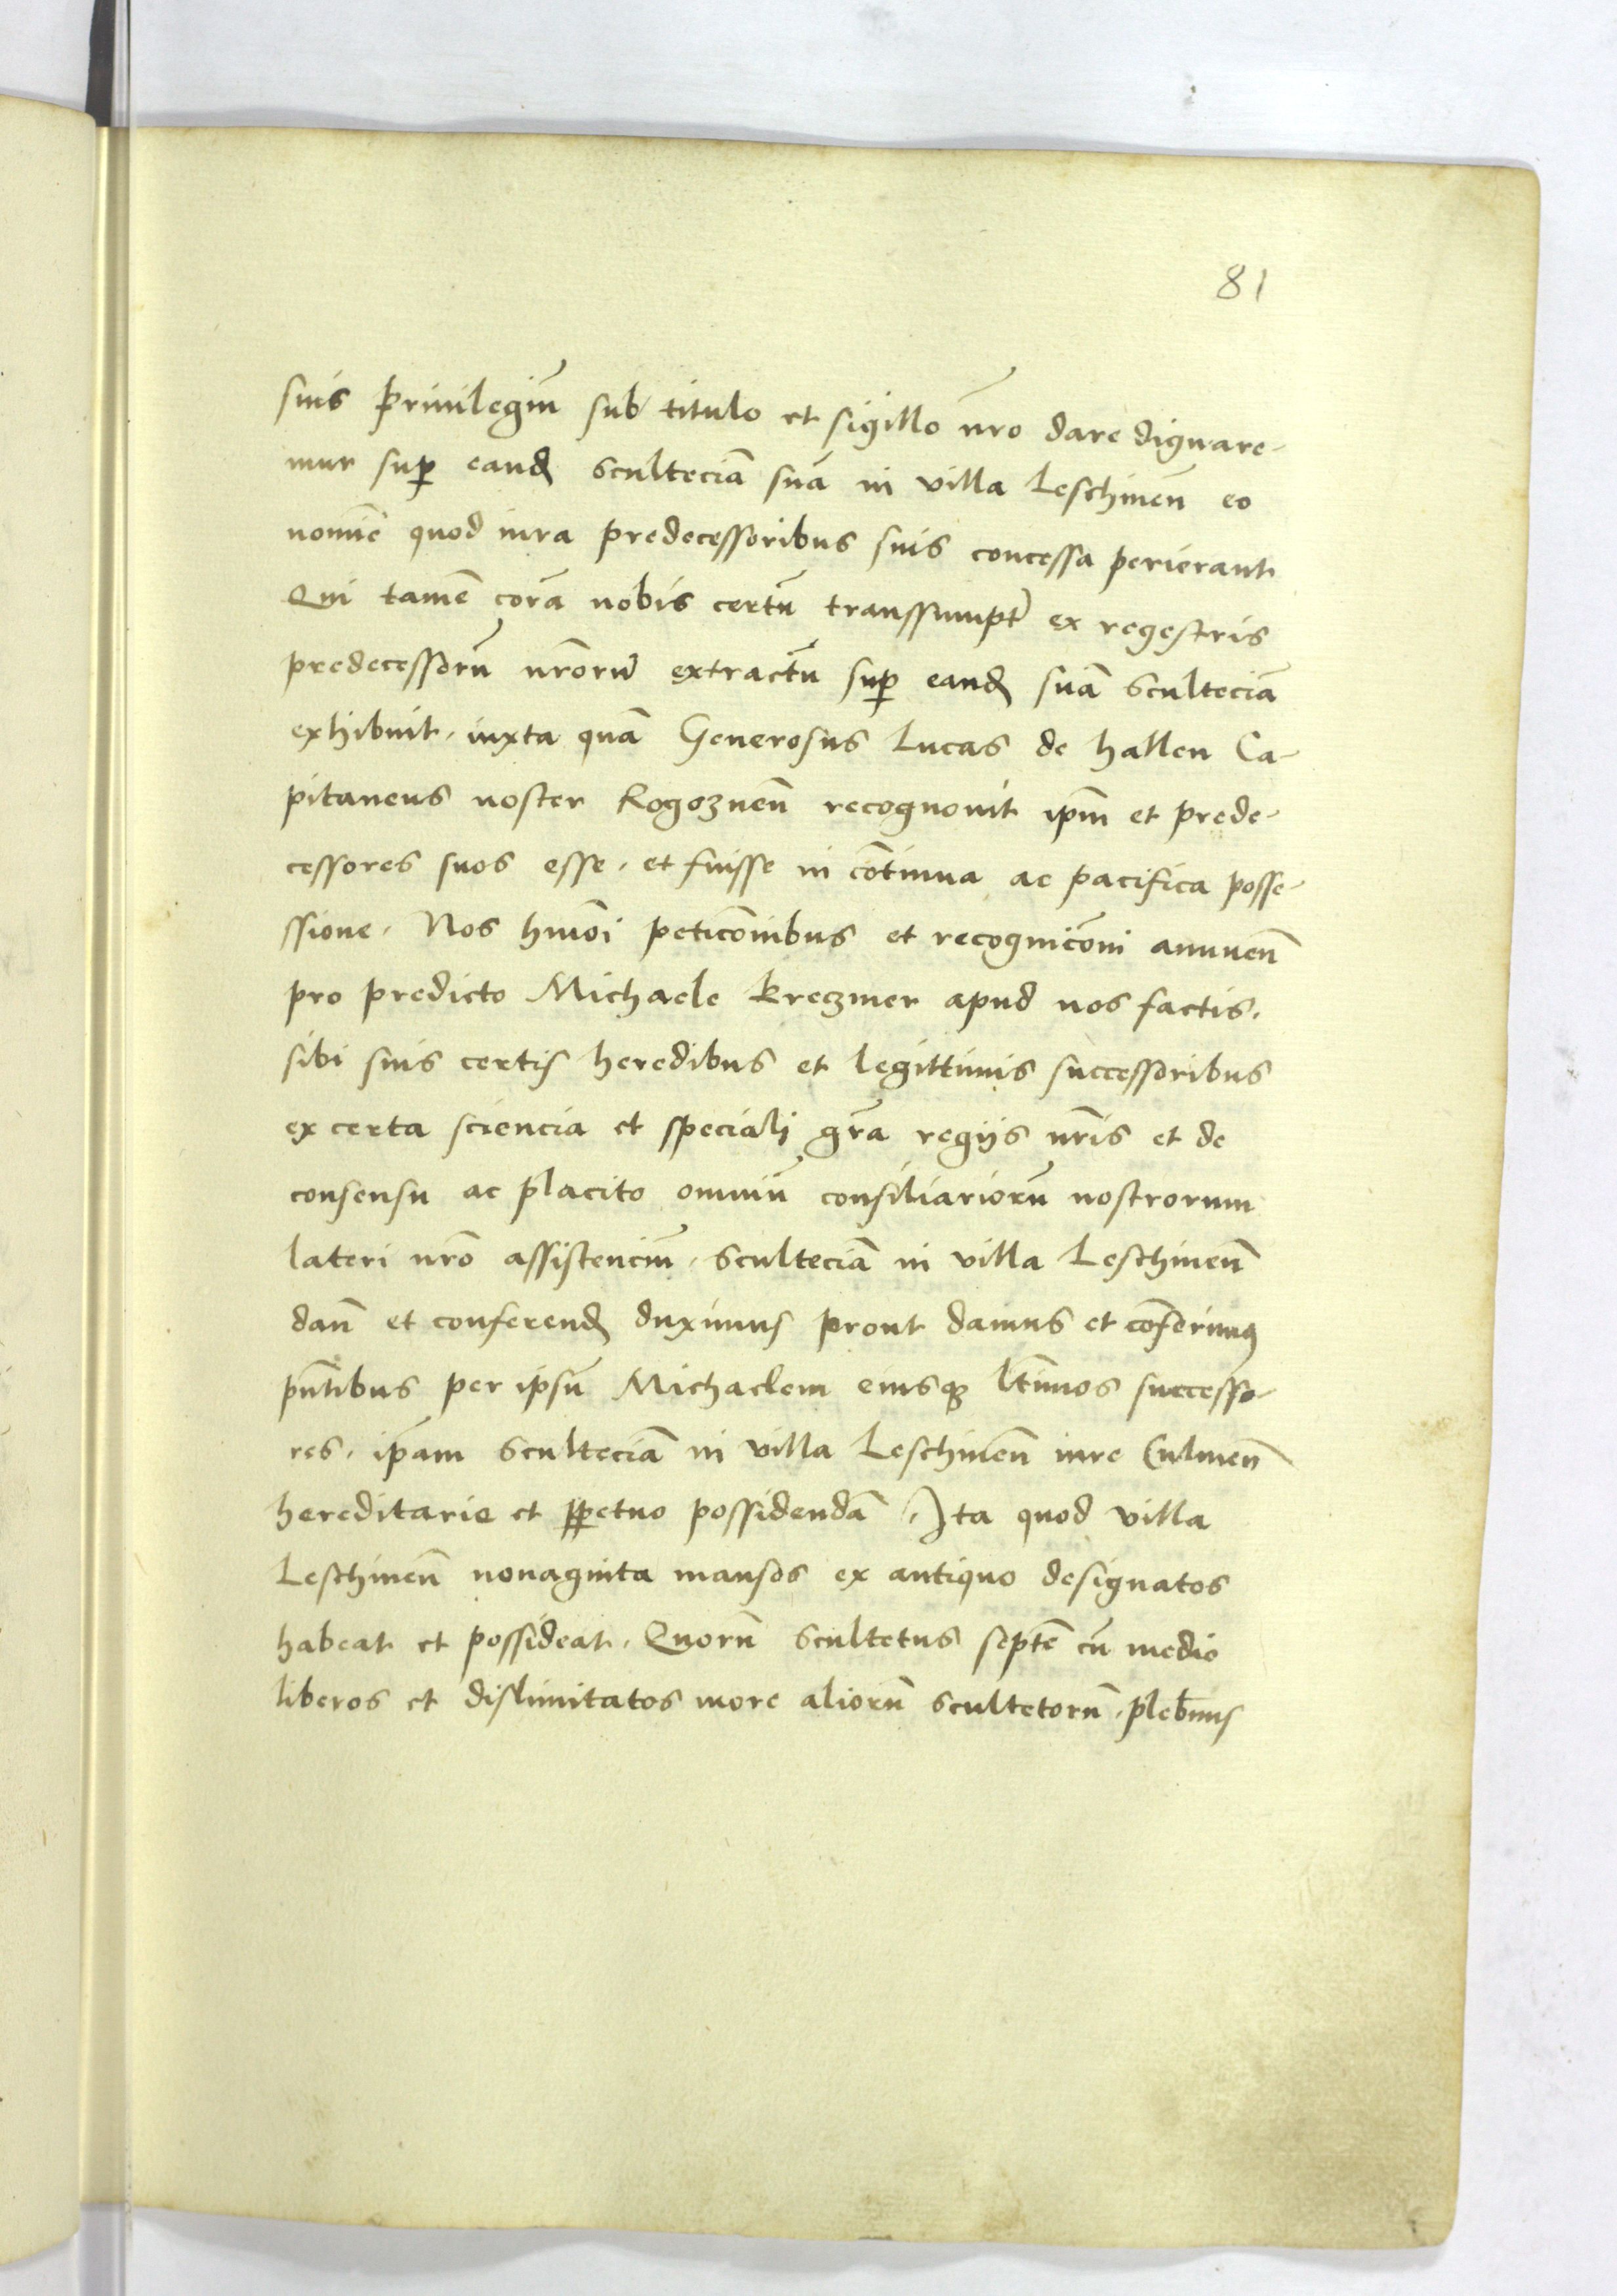 81
suis Priuilegiu͂ sub titulo et sigillo nr͂o dare dignare-
mur sup̲ eandꝫ Scultecia͂ sua͂ in villa Leschinen͂ eo
nomi͂e quod iura predecessoribus suis concessa perierant
Qui tame͂ cora͂ nobis certu͂ transsumpt͂ ex regestris
predecessoru͂ nr͂oru͂ extractu͂ sup̲ eandꝫ sua͂ Scultecia͂
exhibuit. iuxta qua͂ Generosus Lucas de hallen Ca-
pitaneus noster Rogoznen͂ recognouit ip͂m et prede-
cessores suos esse. et fuisse in co͂tinua ac pacifica posse-
ssione. Nos hmo͂i petico͂nibus et recognico͂ni annuen͂
pro predicto Michaele Kreczmer apud nos factis.
sibi suis certis heredibus et legittimis successoribus
ex certa sciencia et speciali gr͂a regijs nr͂is et de
consensu ac placito omniu͂ consiliarioru͂ nostrorum
lateri nr͂o assistenciu͂. Scultecia͂ in villa Leschinen͂
dan͂ et conferendꝫ duximus prout damus et co͂ferimꝰ
pn͂tibus per ipsu͂ Michaelem eiusqꝫ lt͂imos successo-
res. ip͂am Scultecia͂ in villa Leschinen͂ iure Culmen͂
hereditarie et p̲petuo possidenda͂. Ita quod villa
Leschinen͂ nonaginta mansos ex antiquo designatos
habeat et possideat. Quoru͂ Scultetus septe͂ cu͂ medio
liberos et dislimitatos more alioru͂ scultetoru͂. pleb͂nus